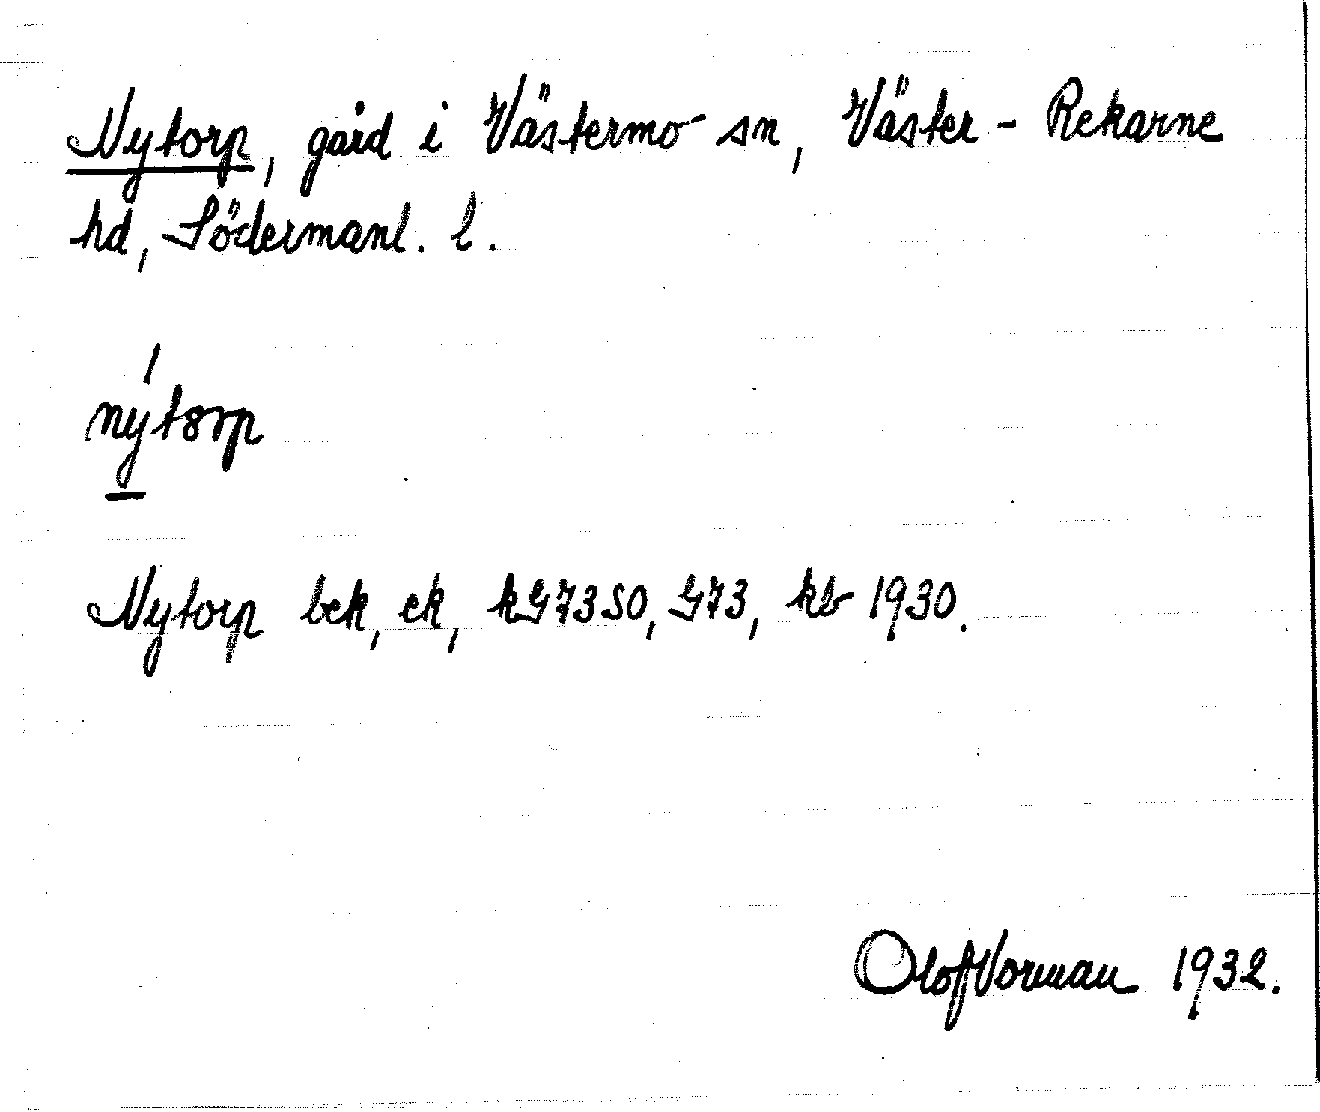 Nytorp, gård i Västermo sn, Väster-Rekarne
hd, Södermanl. l.
nýtorp
Nytorp bek, ek, kG73SO, G73, kb 1930.
Olof Vorman 1932.